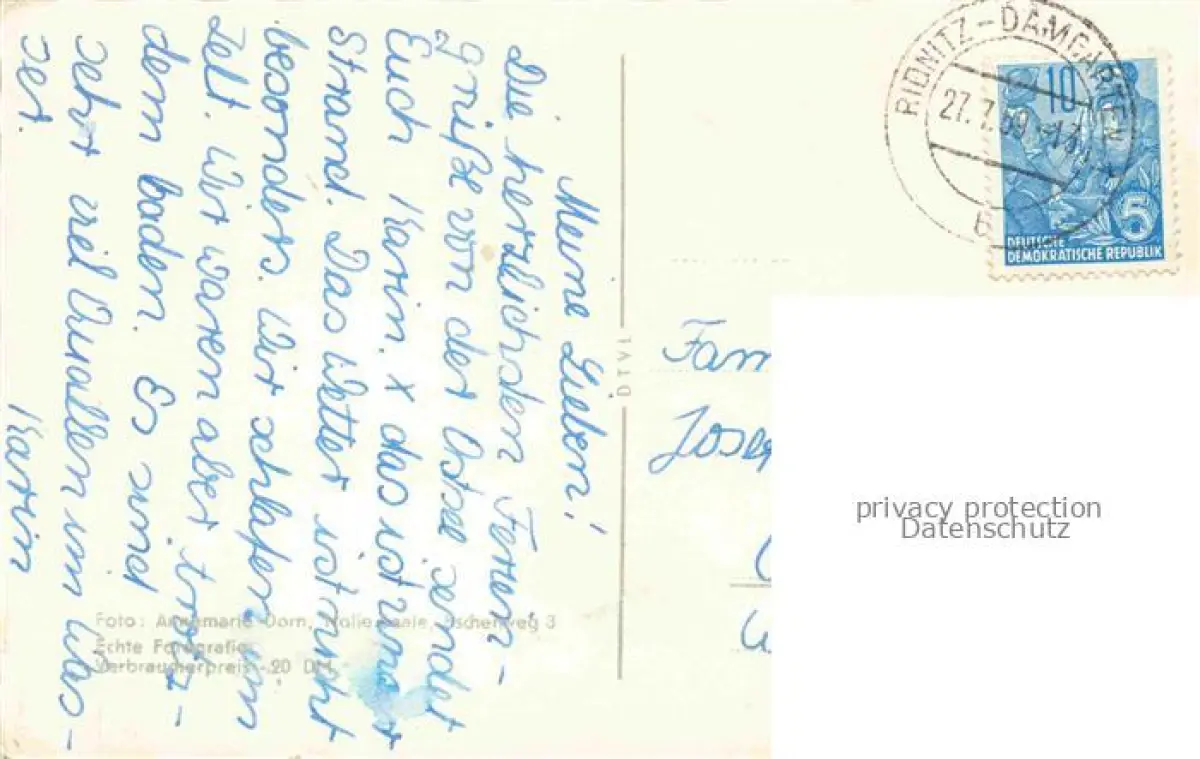 Meine Lieben!
Die herzlichsten Ferien-
grüße von der Ostsee sendet
Euch Karin. x das ist unser
Strand. Das Wetter ist nicht
besonders. Wir schlafen im
Zelt. Wir waren aber trotz-
dem baden. Es sind
sehr viel Quallen im Was-
ser.
Karin
RIBNITZ-DAMGARTEN
27.7.59
10
5
DEUTSCHE
DEMOKRATISCHE REPUBLIK
Fam
Josef
IV 10
privacy protection
Datenschutz
Foto: Annemarie Dorn, Halle Saale, Eschenweg 3
Echte Fotografie
Verbraucherpreis -20 DM